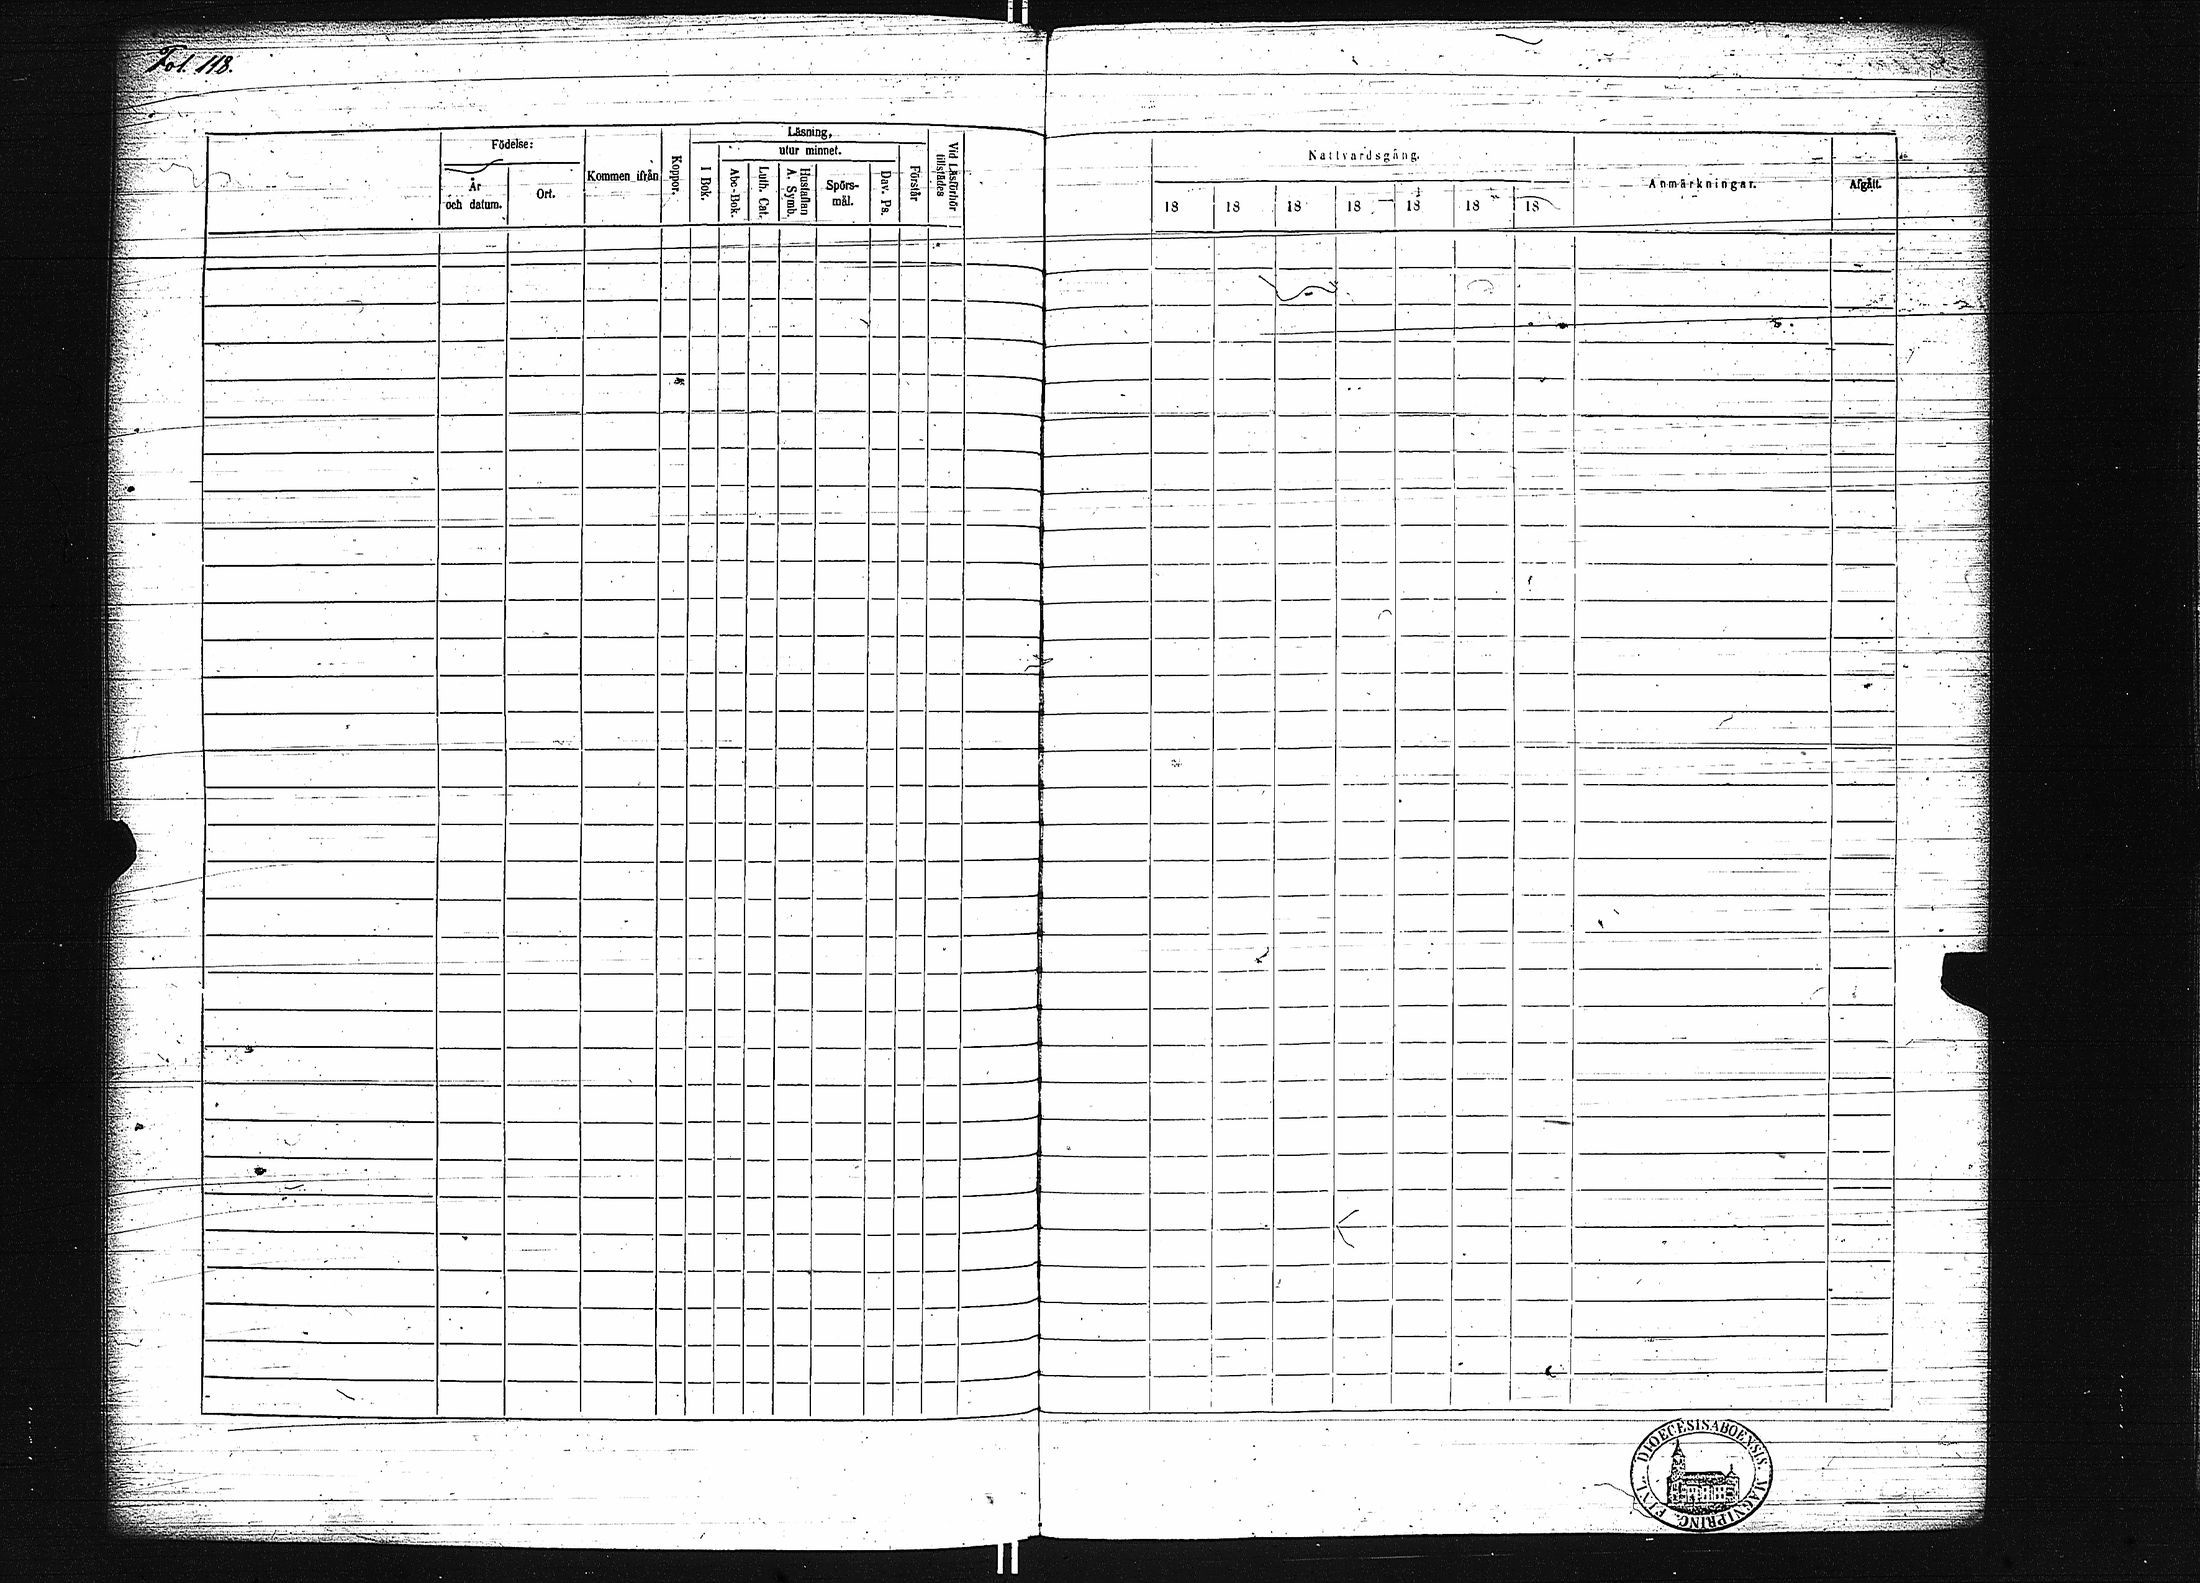 Fol. 118.
Födelse:
År
och datum.
Ort.
Kommen ifrån
Koppor.
Läsning,
I Bok.
utur minnet.
Abc-Bok.
Luth. Cat.
Hustaflan
A. Symb.
Spörs-
mål.
Dav. Ps.
Förstår
Vid Läsförhör
tillstädes
Nattvardsgång.
18 18 18 18 18 18 18
Anmärkningar.
Afgått.
DIOECESIS ABOENSIS. MAGNI PRINC. FINL.